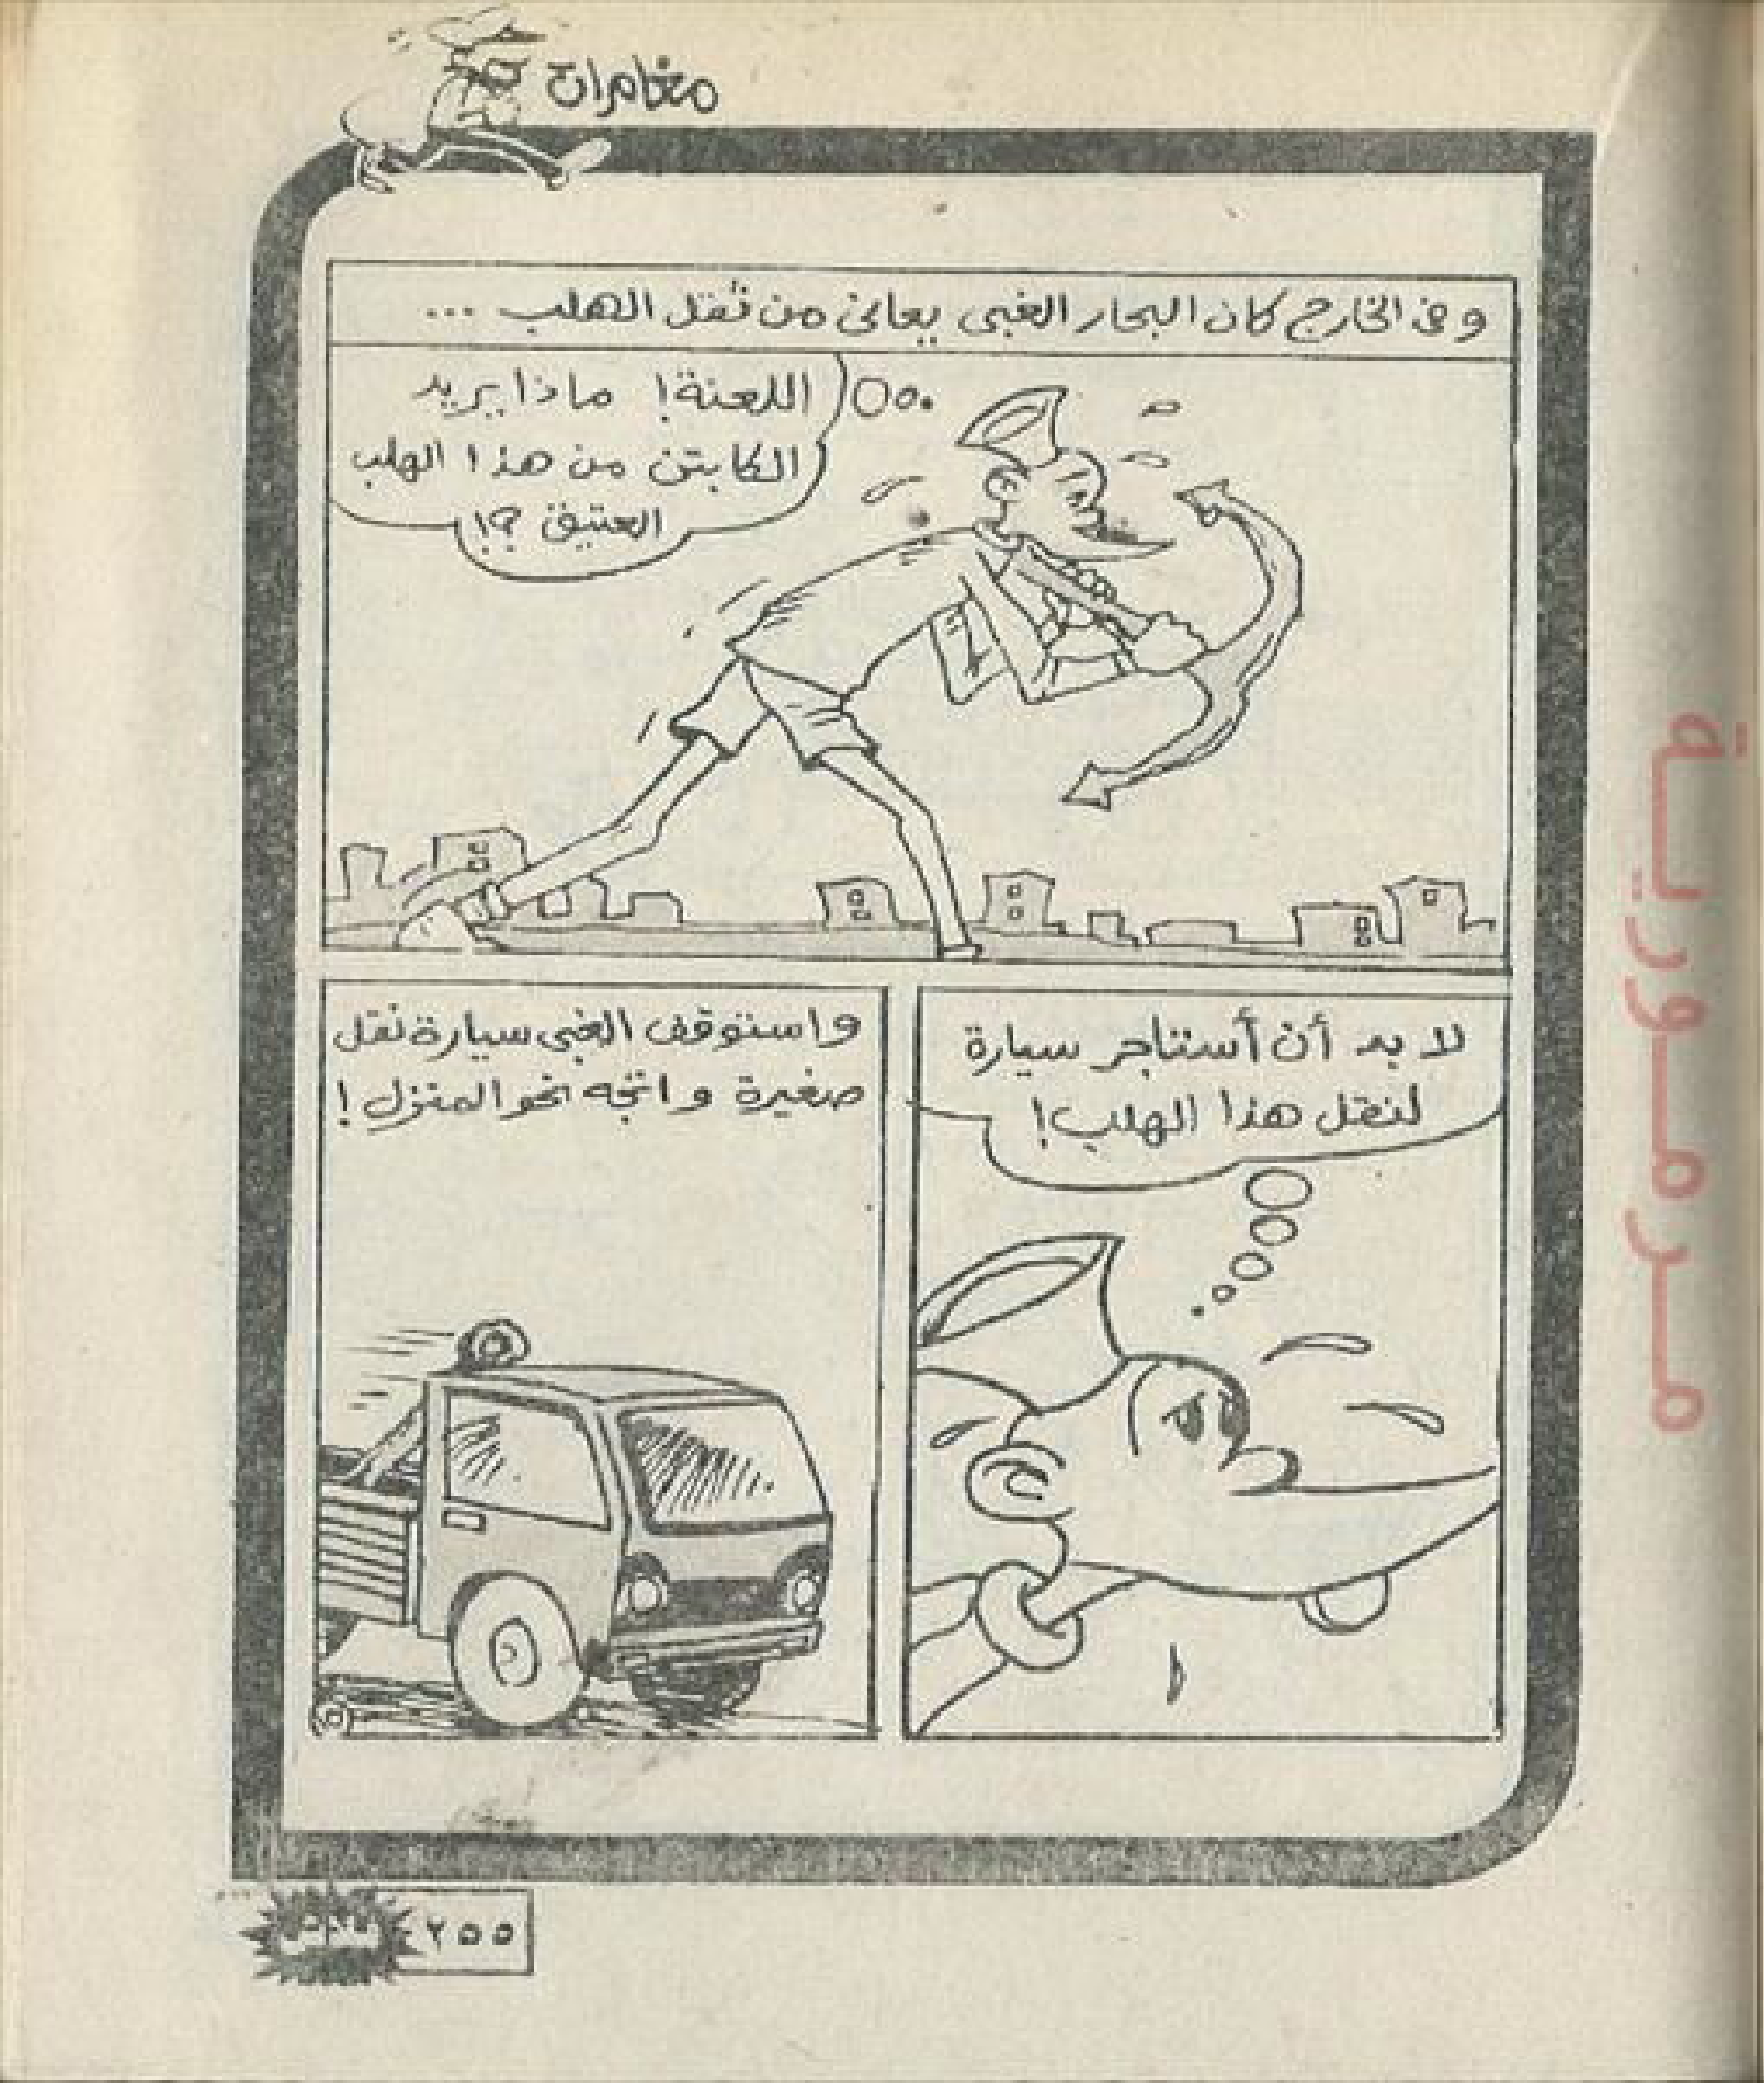 مغامرات
وفى الخارج كان البحار الغبى يعانى من ثقل الهلب ...
اللعنة! ماذا يريد
الكابتن من هذا الهلب
العتيق ؟!
لا بد أن أستأجر سيارة
لنقل هذا الهلب!
واستوقف الغبى سيارة نقل
صغيرة واتجه نحو المنزل!
٢٥٥
مرمورية